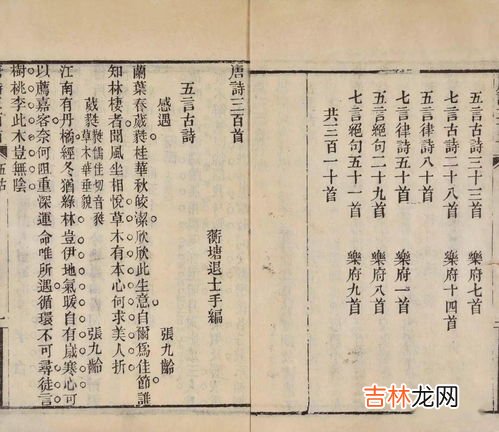 五言古詩三十三首 樂府七首
七言古詩二十八首 樂府十四首
五言律詩八十首
七言律詩五十首 樂府一首
五言絕句二十九首 樂府八首
七言絕句五十一首 樂府九首
共三百一十首
唐詩三百首
蘅塘退士手編
五言古詩
感遇 張九齡
蘭葉春葳蕤桂華秋皎潔欣欣此生意自爾爲佳節誰
知林棲者聞風坐相悅草木有本心何求美人折
葳蕤 草木華垂貌 張九齡
江南有丹橘經冬猶綠林豈伊地氣暖自有歲寒心可
以薦嘉客奈何阻重深運命唯所遇循環不可尋徒言
樹桃李此木豈無陰
吉林龙网